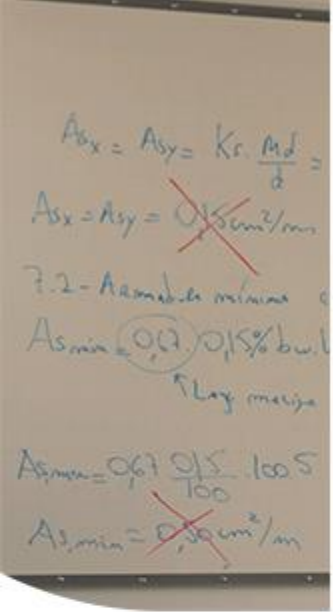 Asx = Asy = Ks. Md/d =
Asx = Asy = 0,15 cm²/m
7.2 - Armadura mínima
As,min = 0,67. 0,15% bw.
Laje maciça
As,min = 0,67 0,15/100 .100 5
As,min = 0,50 cm²/m